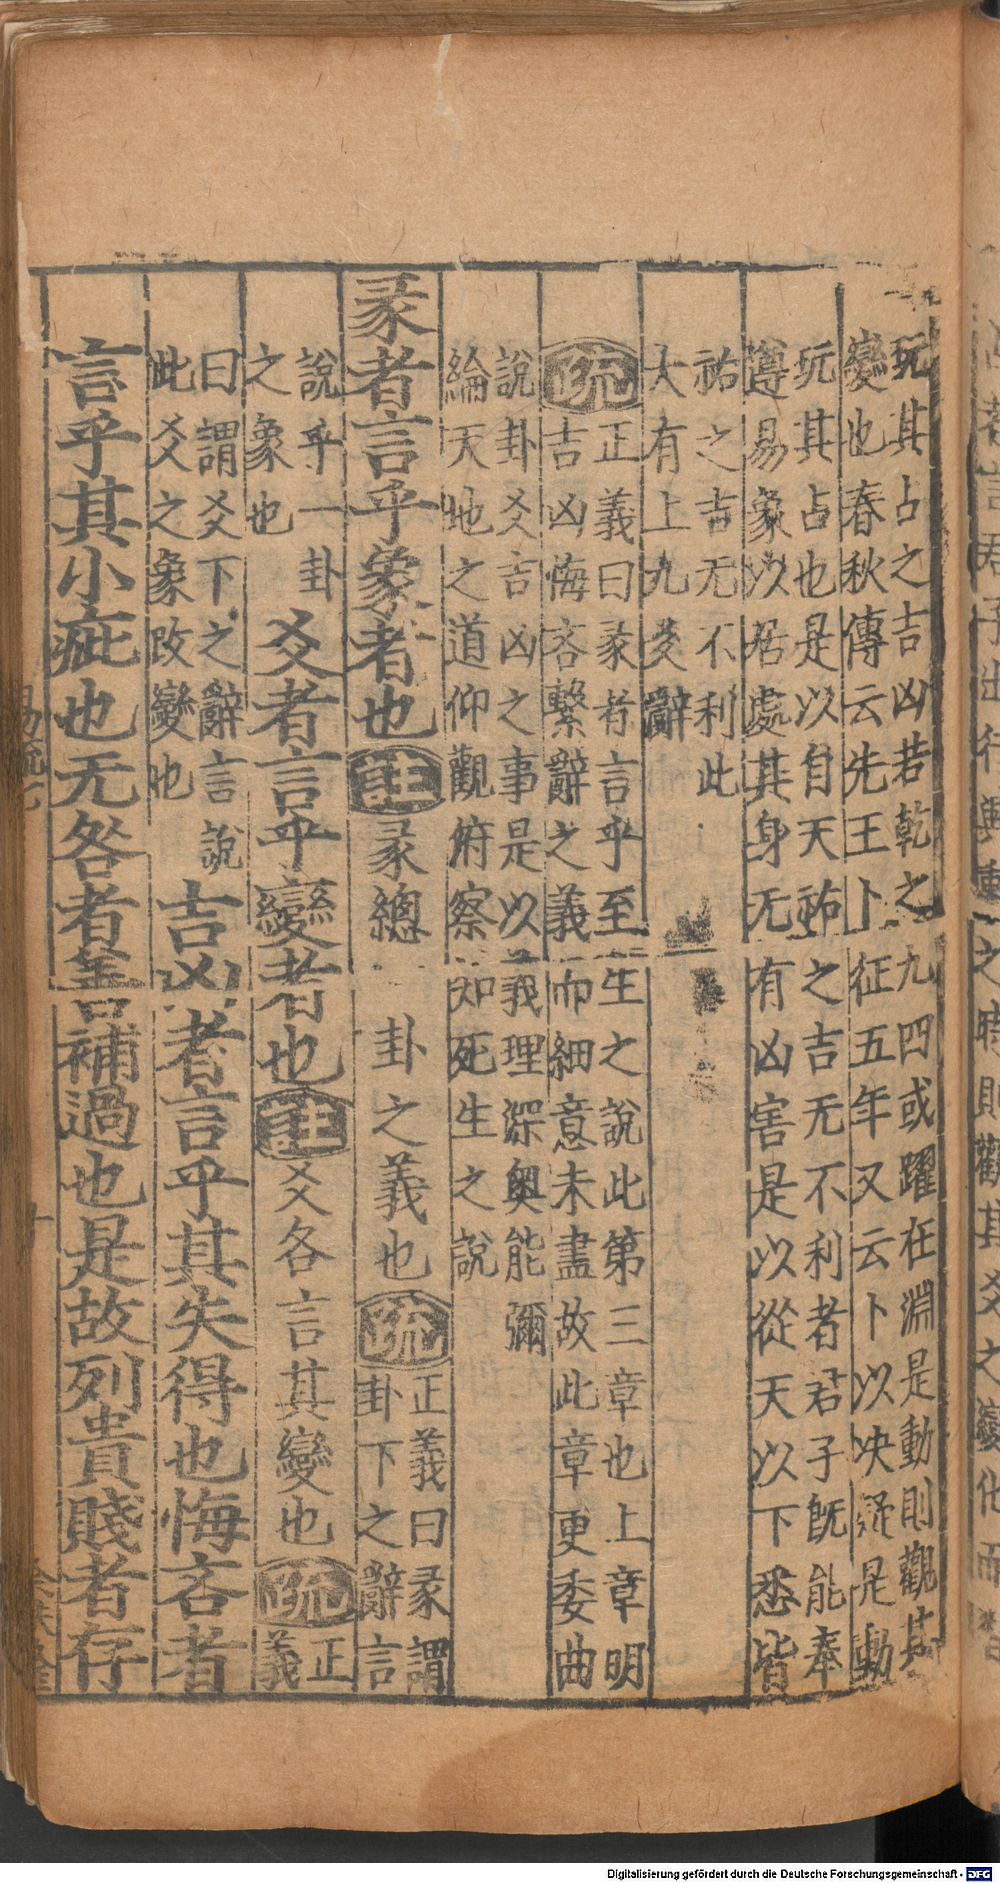 之時則觀其爻之變化而
玩其占之吉凶若乾之九四或躍在淵是動則觀其
變也春秋傳云先王卜征五年又云卜以決疑是動
玩其占也是以自天祐之吉无不利者君子既能奉
遵易象以居處其身无有凶害是以從天以下悉皆
祐之吉无不利此
大有上九爻辭
疏 正義曰彖者言乎至生之說此第三章也上章明
吉凶悔吝繫辭之義而細意未盡故此章更委曲
說卦爻吉凶之事是以義理深奧能彌
綸天地之道仰觀俯察知死生之說
彖者言乎象者也 註 彖總 卦之義也 疏 正義曰彖謂
卦下之辭言
說乎一卦
之象也 爻者言乎變者也 註 爻各言其變也 疏 正
義
曰謂爻下之辭言說
此爻之象改變也 吉凶者言乎其失得也悔吝者
言乎其小疵也无咎者善補過也是故列貴賤者存
易疏七
Digitalisierung gefördert durch die Deutsche Forschungsgemeinschaft - DFG